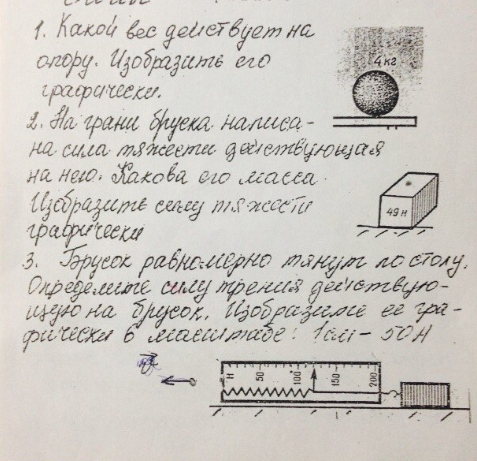 1. Какой вес действует на
опору. Изобразить его
графически.
4 кг
2. На грани бруска написа-
на сила тяжести действующая
на него. Какова его масса
Изобразить силу тяжести
графически
49 Н
3. Брусок равномерно тянут по столу.
Определите силу трения действую-
щую на брусок. Изобразите ее гра-
фически в масштабе: 1см - 50Н
Н 50 100 150 200